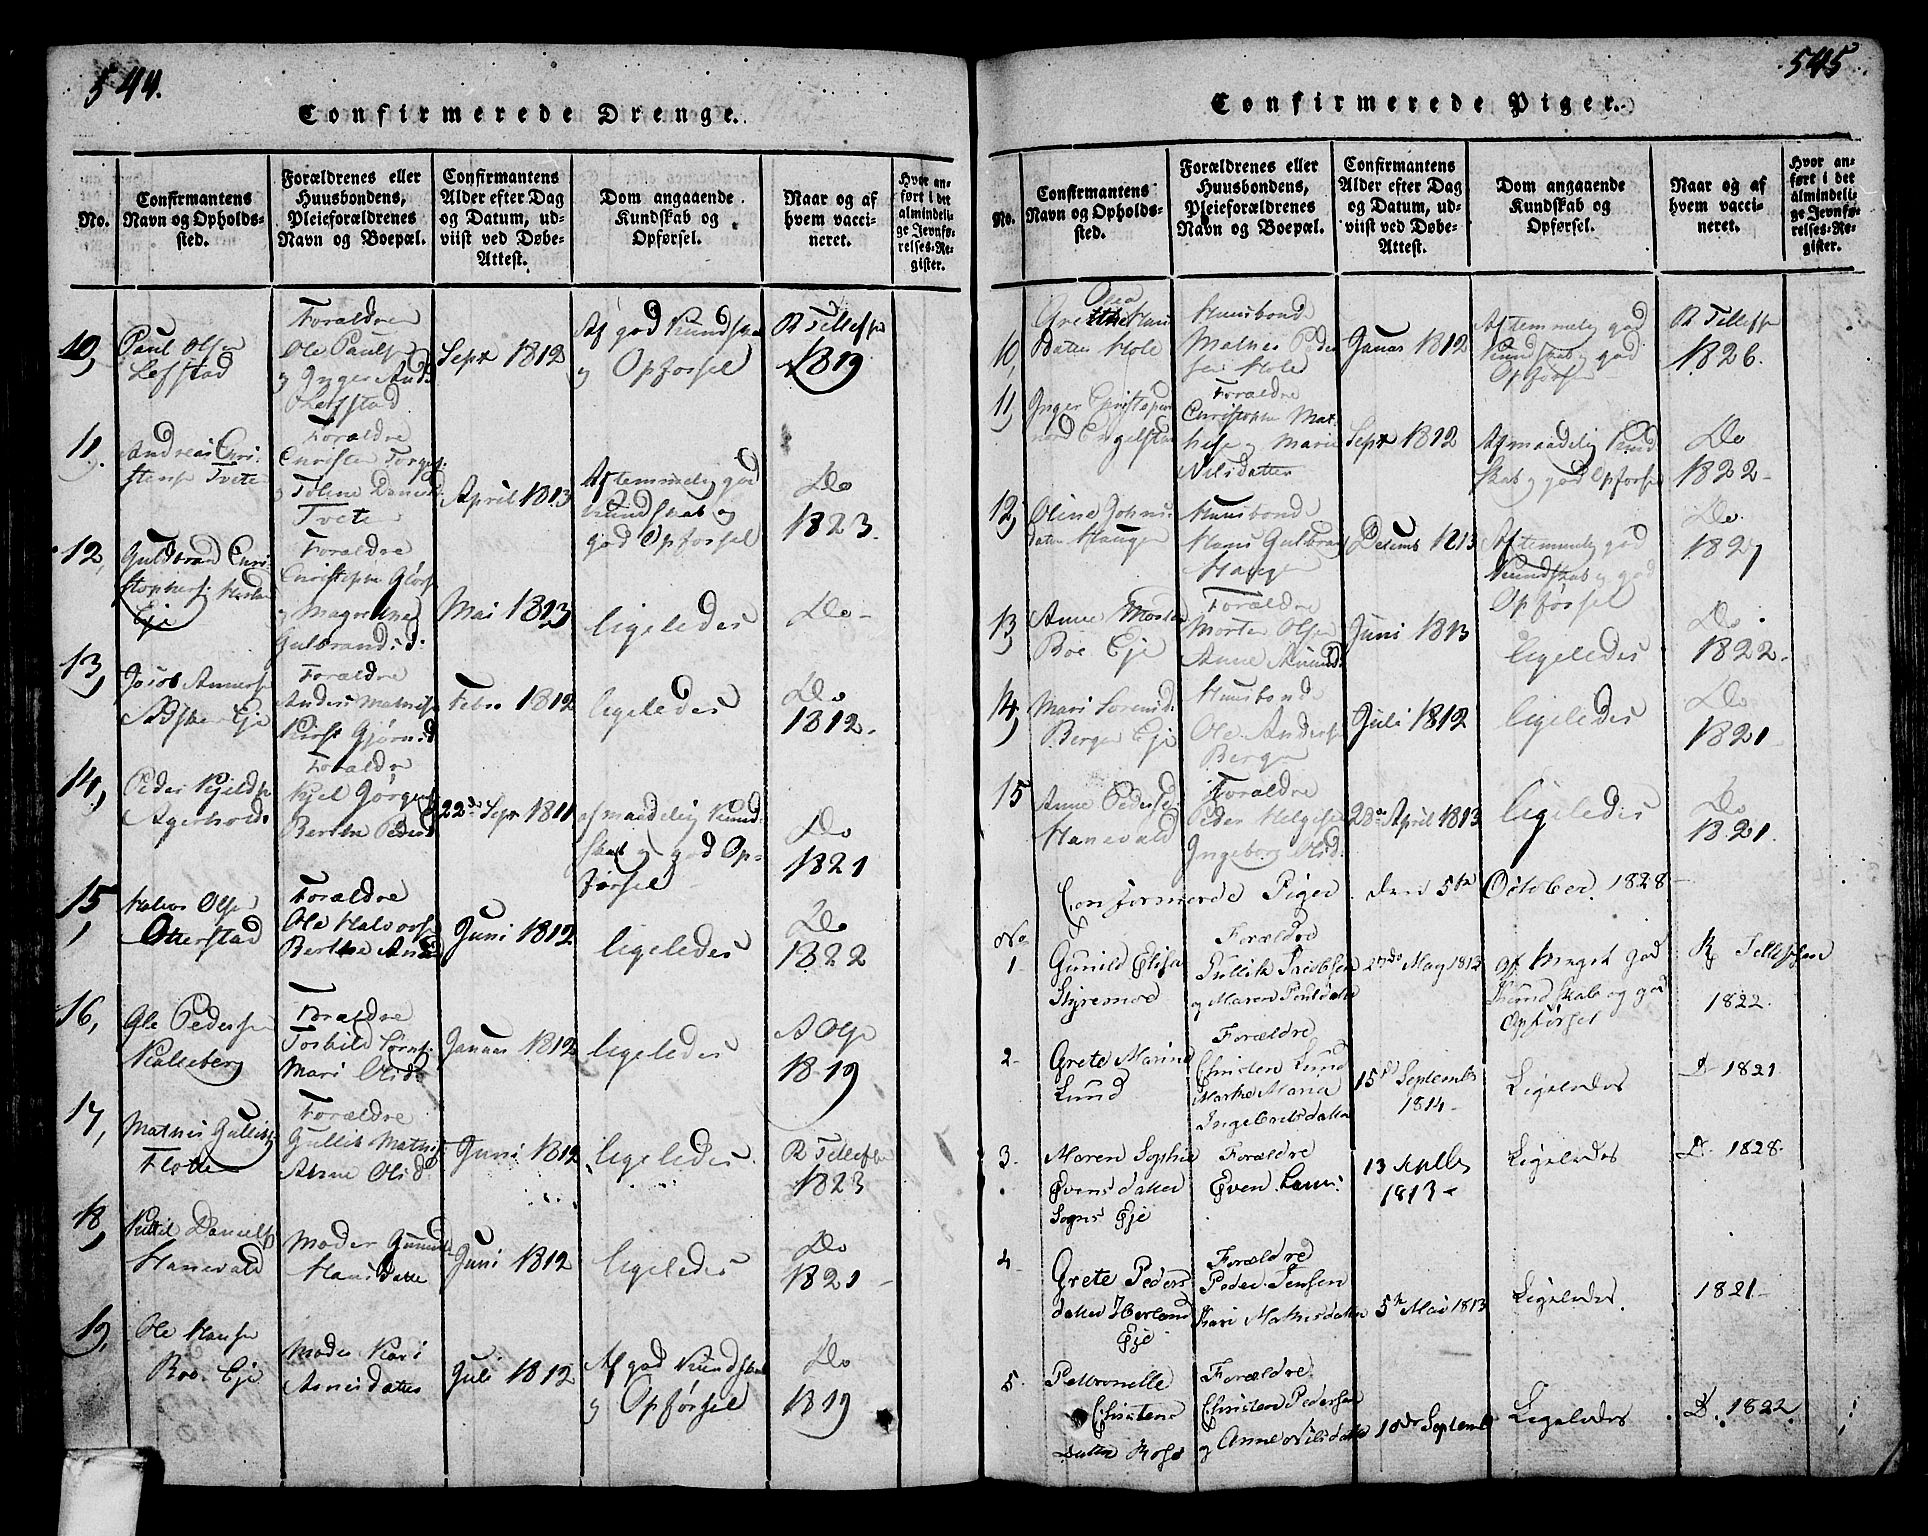 544.
Confirmerede Drenge.
No.
Confirmantens
Navn og Opholds-
sted.
Forældrenes eller
Huusbondens,
Pleieforældrenes
Navn og Boepæl.
Confirmantens
Alder efter Dag
og Datum, ud-
viist ved Døbe-
Attest.
Dom angaaende
Kundskab og
Opførsel.
Naar og af
hvem vacci-
neret.
Hvor an-
ført i det
almindeli-
ge Jevnfø-
relses-Re-
gister.
10,
Paul Olsen
Lefstad
Forældre
Ole Pauls
og Inger And
Lefstad
Sept 1812
Af god Kundska
og Opførsel
R Tellefse
1819
11,
Andreas Chri-
stens Tvete
Forældre
Christen Torges
og Toline Daniels
Tvete
April 1813
Af temmelig god
Kundskab og
god Opførsel
Do
1823.
12,
Guldbran Chri-
stophers
Eje
Forældre
Christophe
og Magrethe
Gulbrandsd:
Mai 1813
ligeledes
Do -
13,
Jacob Anders
Eje
Forældre
Anders Mathis
Febr 1812
ligeledes
Do
1812.
14,
Peder Kjelds
Agerholdt
Forældre
Kjel Jørgens
Berthe Pedersd
22de Sept 1811
af maadelig Kund-
skab og god Op-
førsel
Do
1821
15,
Halvor Olsen
Otterstad
Forældre
Ole Halvors
Berthe And
Juni 1812
ligeledes
Do
1822
16,
Ole Pedersen
Kalleberg
Forældre
Mari Olsd
Januar 1812
ligeledes
A Olse
1819
17,
Mathis Gulliks
Flote
Forældre
Gullik Mathis
Anne Olsd
Juni 1812
ligeledes
R Tellefse
1823
18,
Kittil Daniels
Hanevald
Moder Gunnild
Hansdatte
Juni 1812
ligeledes
Do
1821 -
19,
Ole Hansen
Boe Eje
Moder Kari
Asnesdatter
Juli 1812
Af god Kundskab
og Opførsel
Do
1819
545
Confirmerede Piger.
No.
Confirmantens
Navn og Opholds-
sted.
Forældrenes eller
Huusbondens,
Pleieforældrenes
Navn og Boepæl.
Confirmantens
Alder efter Dag
og Datum, ud-
viist ved Døbe-
Attest.
Dom angaaende
Kundskab og
Opførsel.
Naar og af
hvem vacci-
neret.
Hvor an-
ført i det
almindeli-
ge Jevnfø-
relses-Re-
gister.
10,
Grethe Hans
Datter Hole
Huusbonde
Mathis Peder
sen Hole
Januar 1812
Af temmelig god
Kundskab og god
Opførsel
R Tellefse
1826.
11,
Inger Christopher
Engelstad
Forældre
Christophe Mat-
hese og Marie
Nilsdatter
Sept 1812
Af maadelig Kund
skab og god Opførsel
Do
1822 -
12,
Oline Johns
datter Haugen
Huusbonde
Hans Gulbrands
Haugen
Decemb 1813
Af temmelig god
Kundskab og god
Opførsel
Do.
1827
13,
Anne Morten
Boe Eje
Forældre
Morten Olsen
Anne Amunds
Juni 1813
ligeledes
Do.
1822.
14,
Mari Sørensd.
Bergen Eje
Huusbonde
Ole Anders
Bergen
Juli 1812
ligeledes
Do
1821
15
Anne Peders
Hanevald
Forældre
Peder Helgese
Ingeborg Olsd.
28de April 1813
ligeledes
Do
1821.
Confirmerede Piger den 5te October 1828 -
No
1
Gunild Elisa
Styremoe
Forældre
Tullik Jacobsen
og Maren Poulsdatte
May 1812
Af meget god
Kundskab og god
Opførsel
R Tellefsen
1822.
2 -
Grete Marine
Lund
Forældre
Christen Lund
Marthe Maria
Ingebretsdatter
15de Septembr
1814 -
Ligeledes
D 1821.
3.
Maren Sophie
Evensdatter
Sogns Eje
Forældre
Even Larsi
13 Septbr
1813 -
Ligeledes
D. 1828.
4
Grete Peders
datter Iberland
Eje
Forældre
Peder Jensen
Kari Mathisdatter
5te Mai 1813
Ligeledes.
1821 -
5.
Petronelle
Christens
Datter Kose
Forældre
Christen Pedersen
og Anne Nilsdatter
10de Septemb
Ligeledes
D. 1822.